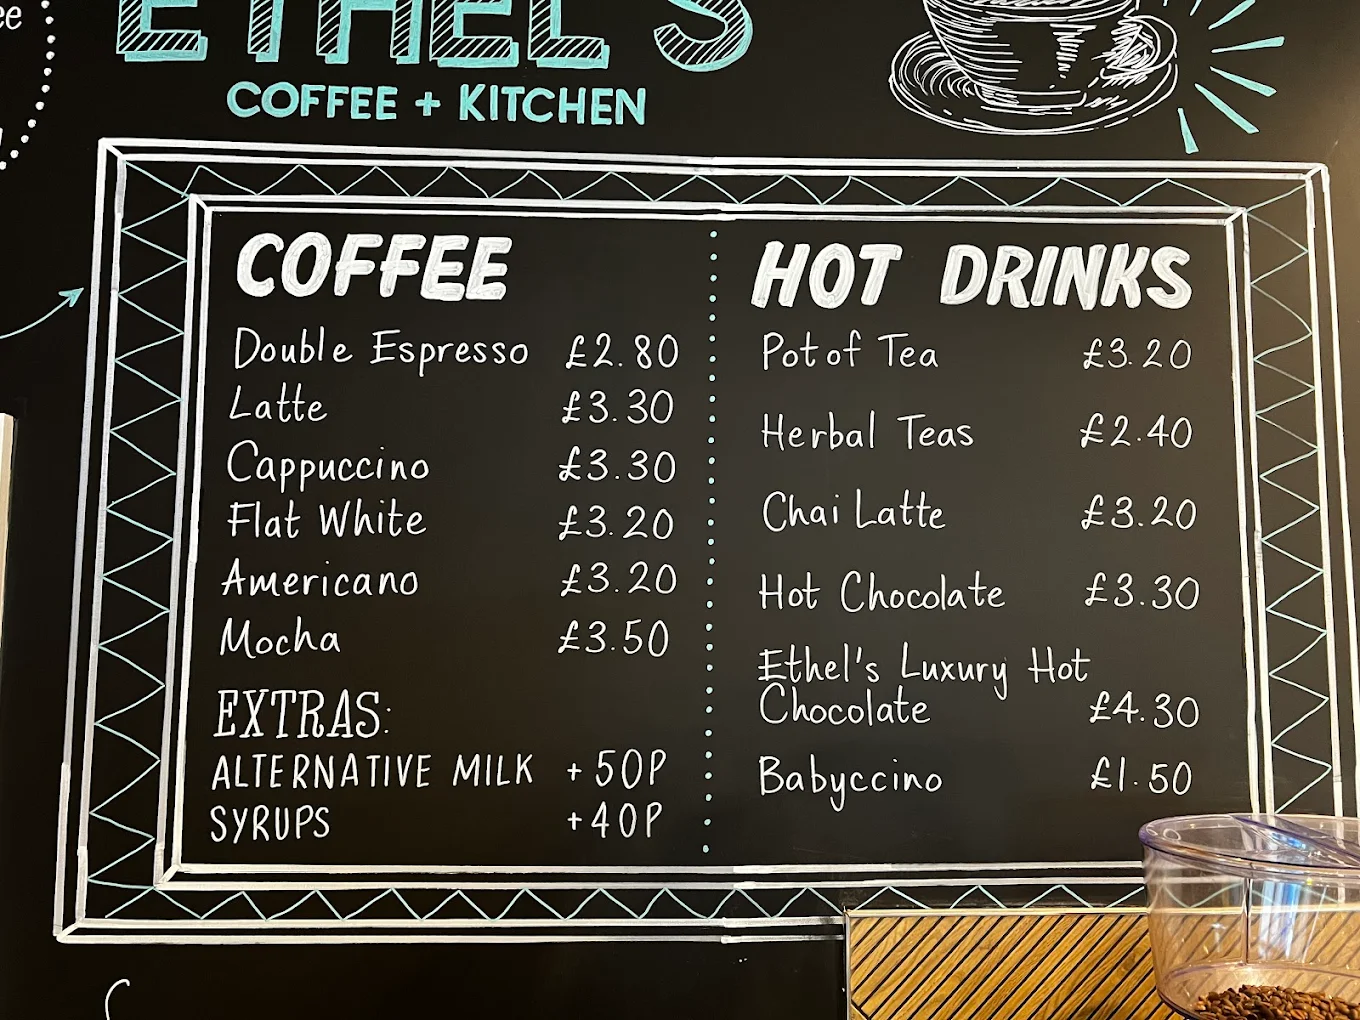 ee
ETHEL'S
COFFEE + KITCHEN
COFFEE
Double Espresso £2.80
Latte £3.30
Cappuccino £3.30
Flat White £3.20
Americano £3.20
Mocha £3.50
EXTRAS:
ALTERNATIVE MILK +50P
SYRUPS +40P
HOT DRINKS
Pot of Tea £3.20
Herbal Teas £2.40
Chai Latte £3.20
Hot Chocolate £3.30
Ethel's Luxury Hot
Chocolate £4.30
Babyccino £1.50